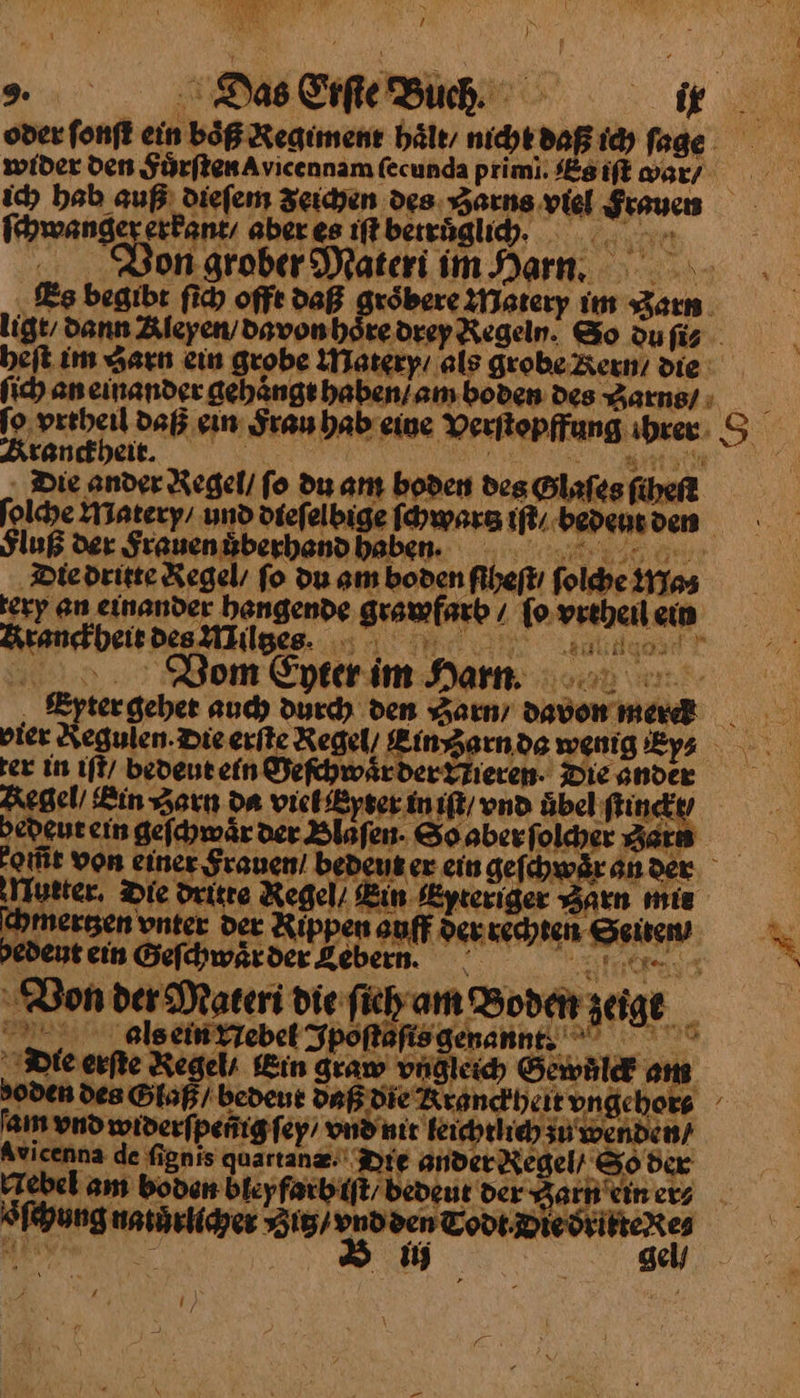 9. Das Erſte Buch. ix
oder ſonſt ein boͤß Regiment haͤlt/ nicht daß ich ſage
wider den Fuͤrſten Avicennam ſecunda primi. Es iſt war/
ich hab auß dieſem zeichen des Harns viel Frauen
ſchwanger erkant/ aber es iſt betruͤglich.
Von grober Materi im Harn.
Es begibt ſich offt daß groͤbere Matery im Harn
ligt/ dann Kleyen/ davon hoͤre drey Regeln. So du ſi⸗
heſt im Harn ein grobe Matery/ als grobe Kern/ die
ſich an einander gehaͤngt haben/ am boden des Harns/
ſo vrtheil daß ein Frau hab eine Verſtopffung ihrer
Kranckheit.
Die ander Regel/ ſo du am boden des Glaſes ſiheſt
ſolche Matery/ und dieſelbige ſchwartz iſt/ bedeut den
Fluß der Frauen uͤberhand haben.
Die dritte Regel/ ſo du am boden ſiheſt/ ſolche Ma⸗
tery an einander hangende grawfarb / ſo vrtheil ein
Kranckheit des Miltzes.
Vom Eyter im Harn.
Eyter gehet auch durch den Harn/ davon merck
vier Regulen. Die erſte Regel/ Ein Harn da wenig Ey⸗
ter in iſt/ bedeut ein Geſchwaͤr der Nieren. Die ander
Regel/ Ein Harn da viel Eyter in iſt/ vnd uͤbel ſtinckt/
bedeut ein geſchwaͤr der Blaſen. So aber ſolcher Harn
kom̃t von einer Frauen/ bedeut er ein geſchwaͤr an der
Mutter. Die dritte Regel/ Ein Eyteriger Harn mit
ſchmertzen vnter der Rippen auff der rechten Seiten/
bedeut ein Geſchwaͤr der Lebern.
Von der Materi die ſich am Boden zeigt
als ein Nebel Ipoſtaſis genannt.
Die erſte Regel/ Ein graw vngleich Gewuͤlck am
boden des Glaß/ bedeut daß die Kranckheit vngehor⸗
ſam vnd widerſpeñig ſey/ vnd nit leichtlich zu wenden/
Avicenna de ſignis quartanæ. Die ander Regel/ So der
Nebel am boden bleyfarb iſt/ bedeut der Harn ein er⸗
oͤſchung natuͤrlicher Hitz/ vnd den Todt. Die dritte Re⸗
B iij gel/